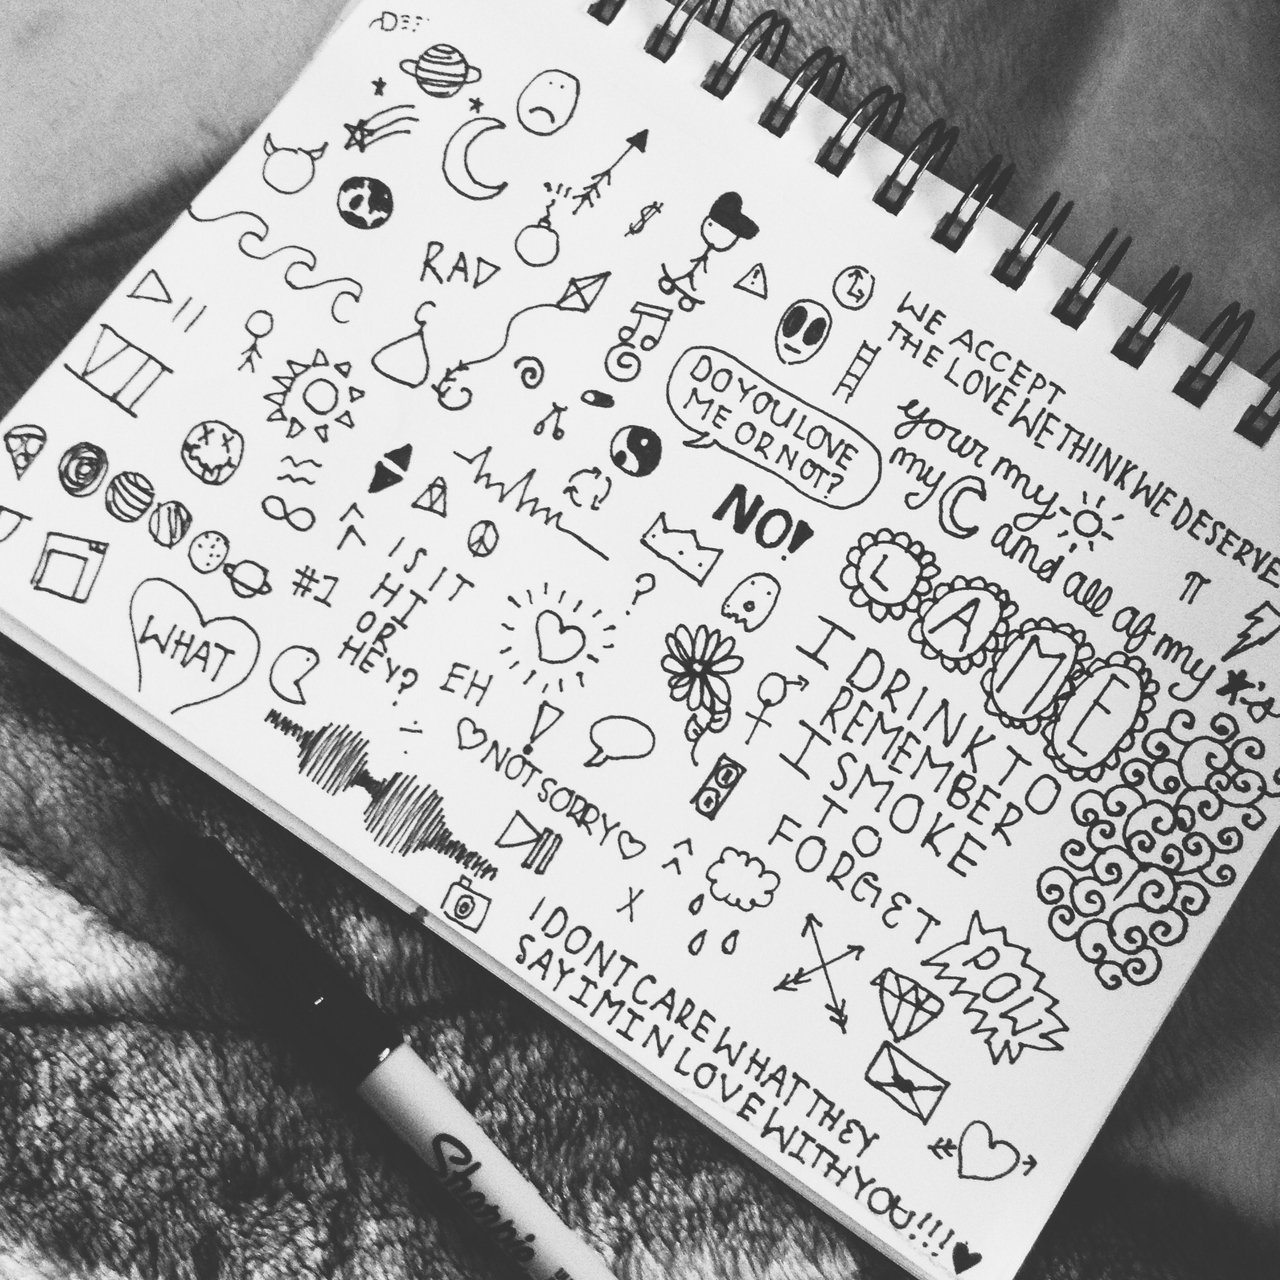 RAD
$
WE ACCEPT
THE LOVE WE THINK WE DESERVE
DO YOU LOVE
ME OR NOT?
your my
my and all of my *'s
NO!
π
VII
LAME
I DRINK TO
REMEMBER
I SMOKE
TO
FORGET
#1
IS IT
HI
OR
HEY?
?
WHAT
EH
!
♡NOT SORRY♡
X
POW
I DONT CARE WHAT THEY
SAY IM IN LOVE WITH YOU!!!!♥
Sharpie